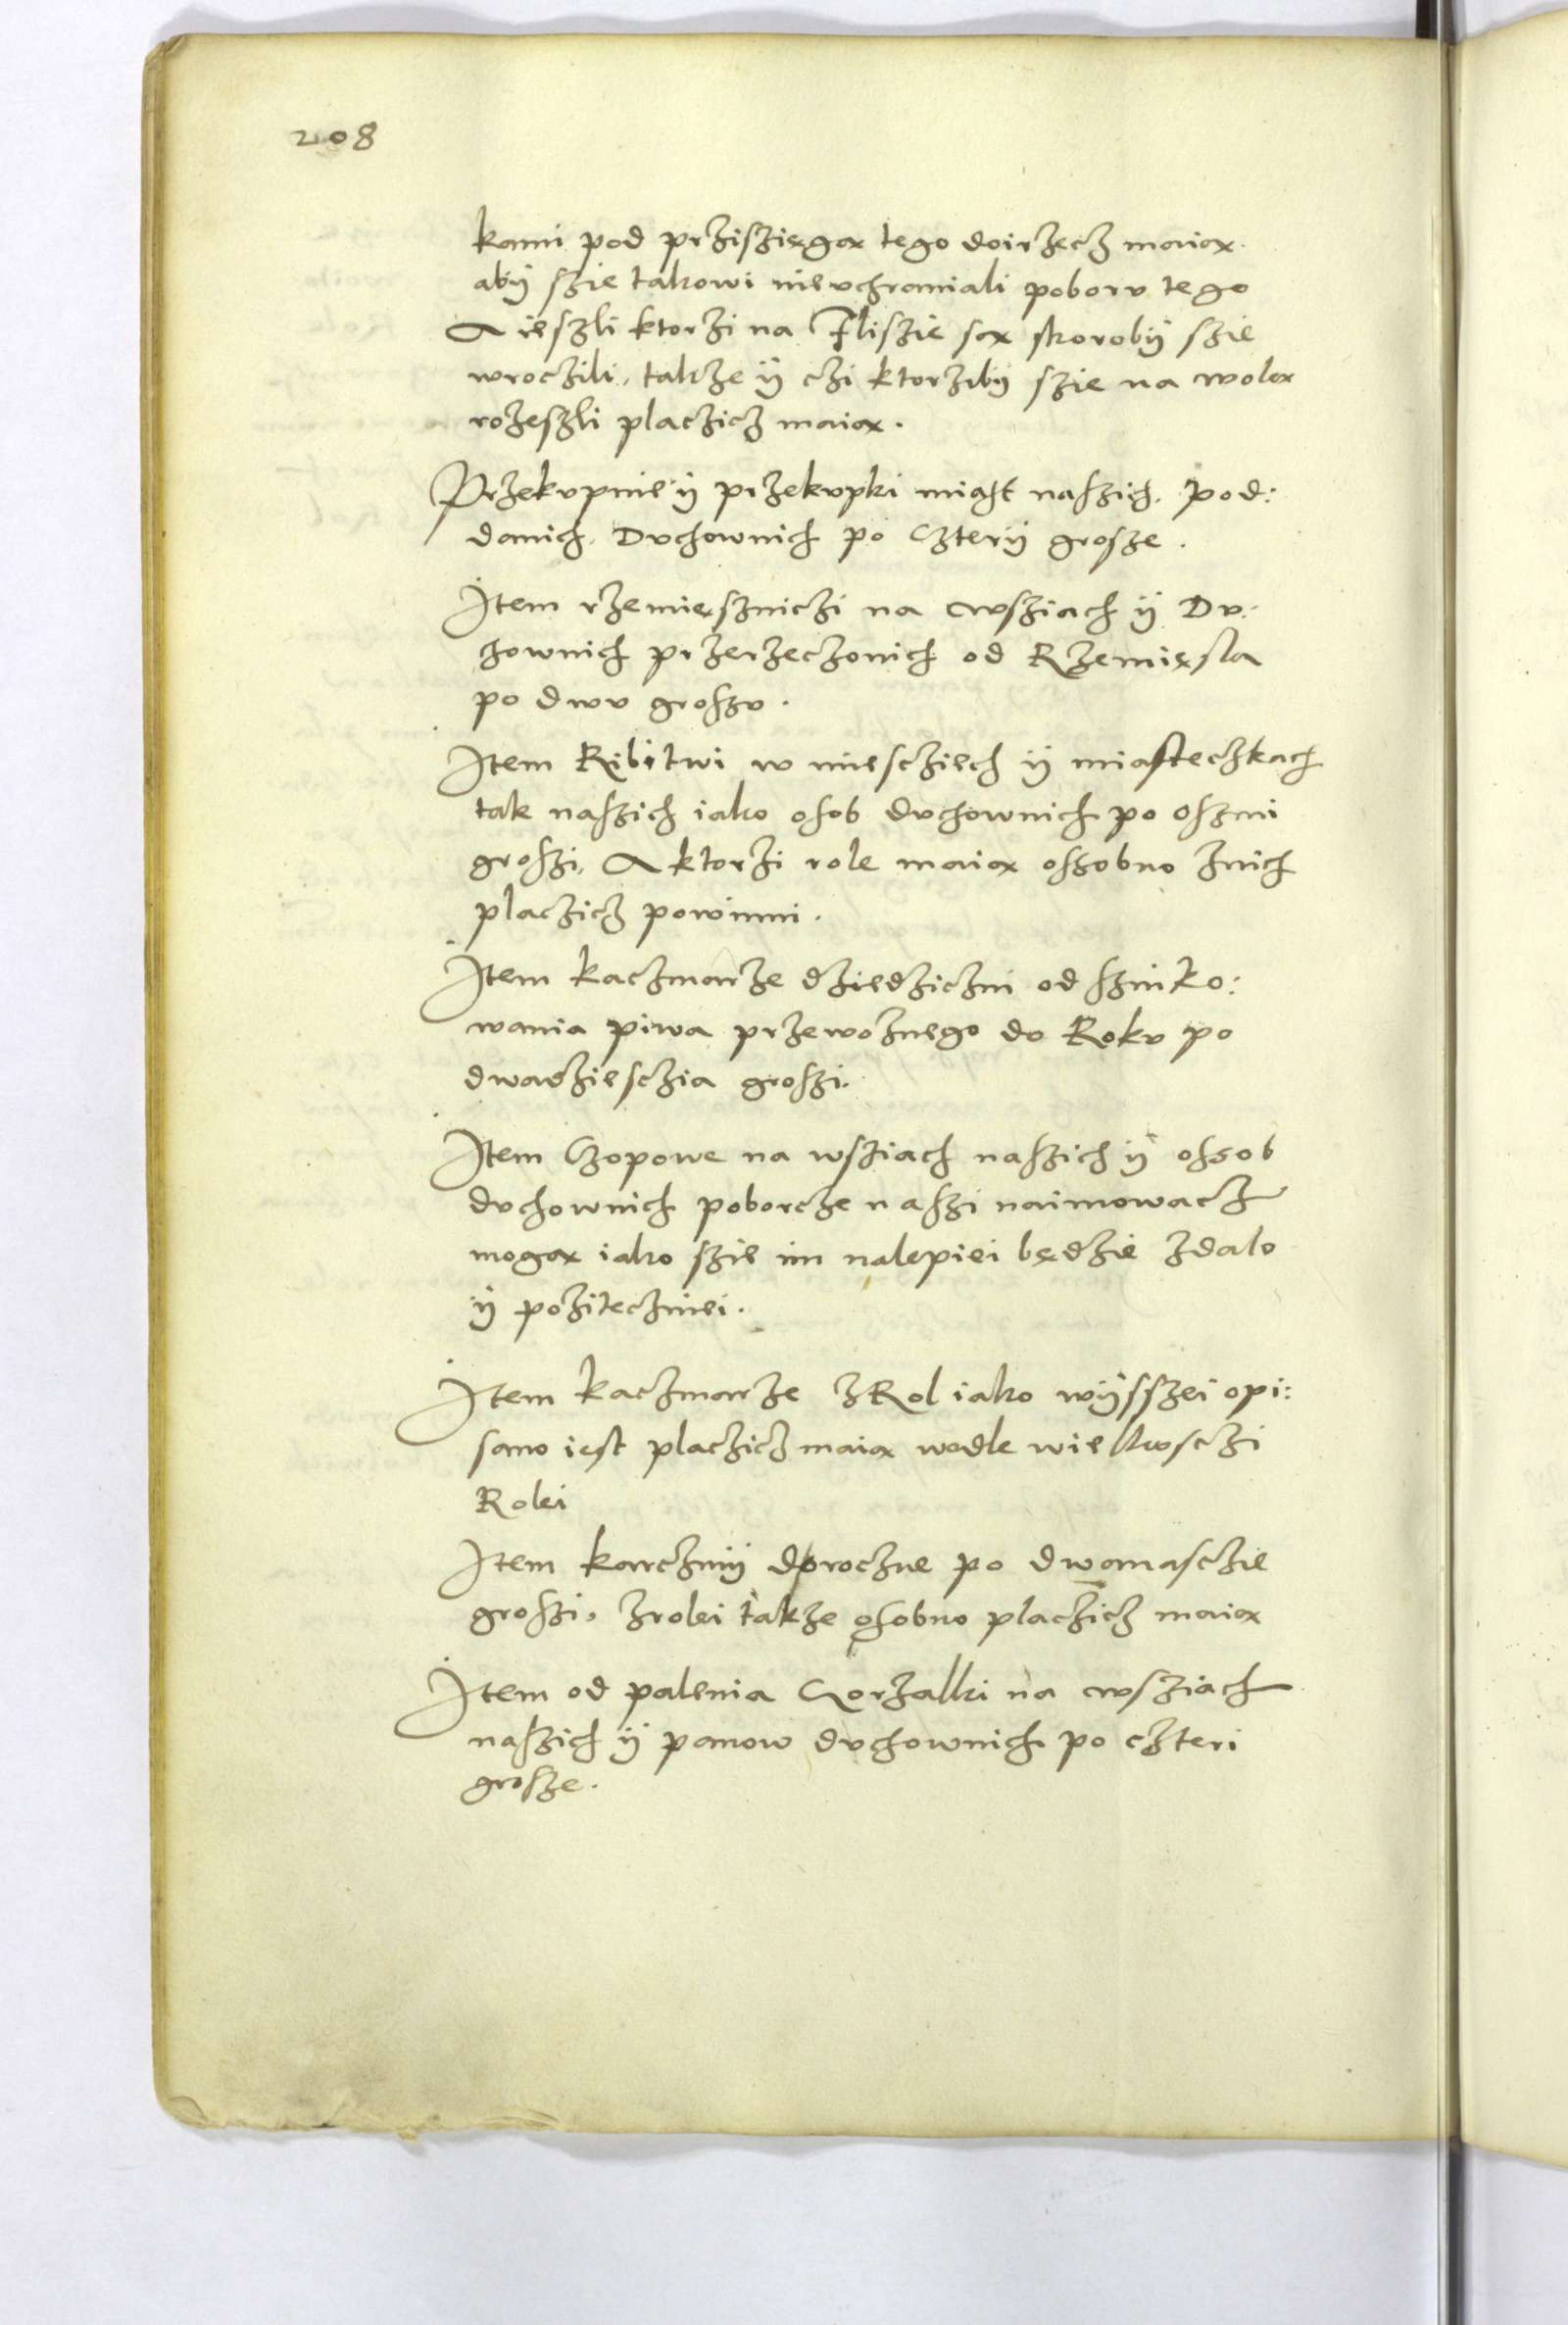 208
kami pod prziszięgą tego doirzecz maią
abÿ szie takowi nievchraniali poborv tego
A ieszli ktorzi na Fliszie są skorobÿ szie
wroczili, takze ÿ czi ktorzibÿ szie na wolą
rozeszli placzicz maią.
Przekvpnie ÿ przekvpki miast naszich, pod:
danich, Dvchownich po Czterÿ grosze.
Item rzemięszniczi na wsziach ÿ Dv:
hownich przerzeczonich od Rzemięsla
po dwv groszv.
Item Ribitwi w miescziech ÿ miasteczkach
tak naszich iako osob dvchownich po oszmi
groszi, A ktorzi role maią oszobno znich
placzicz powinni.
Item kaczmarze dziedziczni od szinko:
wania piwa przewoznego do Rokv po
dwadziesczia groszi.
Item Czopowe na wsziach naszich ÿ ossob
dvchownich poborcze naszi naimowacz
mogą iako szie im nalepiei będzie zdalo
ÿ poziteczniei.
Item kaczmarze z Rol iako wÿsszei opi:
sano iest placzicz maią wedle wielkosczi
Rolei
Item karczmÿ doroczne po dwanasczie
groszi, z rolei takze osobno placzicz maią
Item od palenia Gorzalki na wsziach
naszich ÿ panow dvchownich po czteri
grosze.